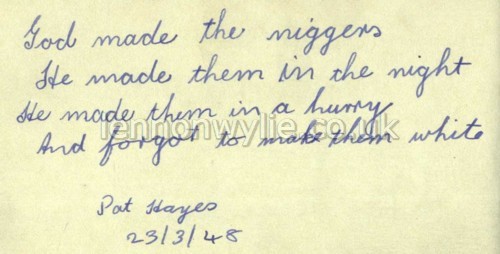 God made the niggers
He made them in the night
He made them in a hurry
lennonwylie.co.uk
And forgot to make them white
Pat Hayes
23/3/48